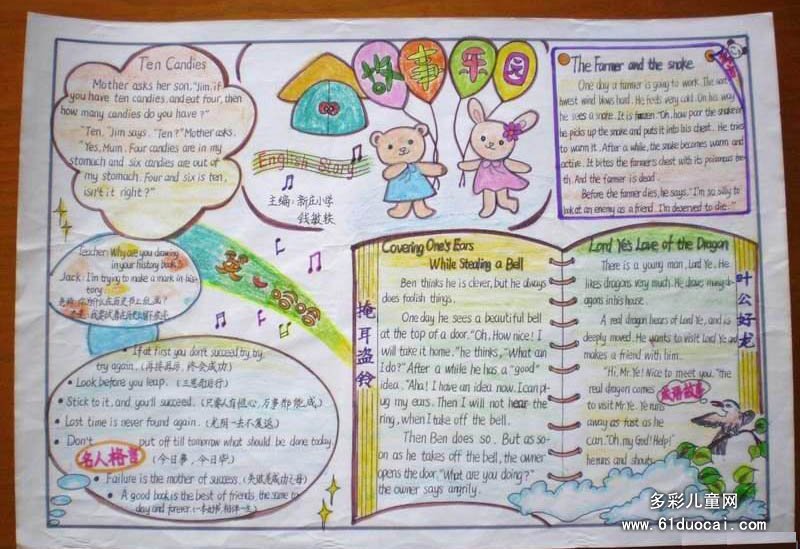 Ten Candies
Mother asks her son, "Jim, if
you have ten candies, and eat four, then
how many candies do you have?"
"Ten," Jim says. "Ten?" Mother asks.
"Yes, Mum. Four candies are in my
stomach and six candies are out of
my stomach. Four and six is ten,
isn't it right?"
故事乐园
English Story
主编:新庄小学
钱敏轶
The Farmer and the snake
One day a farmer is going to work. The nort
hwest wind blows hard. He feels very cold. On his way,
he sees a snake. It is frozen. "Oh, how poor the snake is!"
he picks up the snake and puts it into his chest. He tries
to warm it. After a while, the snake becomes warm and
active. It bites the farmer's chest with its poisonous tee
th. And the farmer is dead.
Before the farmer dies, he says, "I'm so silly to
look at an enemy as a friend. I'm deserved to die."
Teacher: Why are you drawing
in your history book?
Jack: I'm trying to make a mark in his-
tory.
If at first you don't succeed try, try,
try again. (再接再厉,终会成功)
Look before you leap. (三思而后行)
Stick to it, and you'll succeed. (只要人有恒心,万事都能成)
Lost time is never found again. (光阴一去不复返)
Don't put off till tomorrow what should be done today.
名人格言
(今日事,今日毕)
Failure is the mother of success. (失败是成功之母)
A good book is the best of friends, the same to
day and forever.
掩耳盗铃
Covering One's Ears
While Stealing a Bell
Ben thinks he is clever, but he always
does foolish things.
One day he sees a beautiful bell
at the top of a door. "Oh, How nice! I
will take it home." he thinks, "What can
I do?" After a while he has a "good"
idea. "Aha! I have an idea now. I can pl-
ug my ears. Then I will not hear the
ring, when I take off the bell.
Then Ben does so. But as so-
on as he takes off the bell, the owner
opens the door. "What are you doing?"
the owner says angrily.
Lord Ye's Love of the Dragon
There is a young man, Lord Ye. He
likes dragons very much. He draws many dr
agons in his house.
A real dragon hears of Lord Ye, and is
deeply moved. He wants to visit Lord Ye and
makes a friend with him.
"Hi, Mr. Ye! Nice to meet you." the
real dragon comes
to visit Mr. Ye. Ye runs
away as fast as he
can. "Oh, my God! Help!"
he runs and shouts.
成语故事
叶公好龙
多彩儿童网
www.61duocai.com